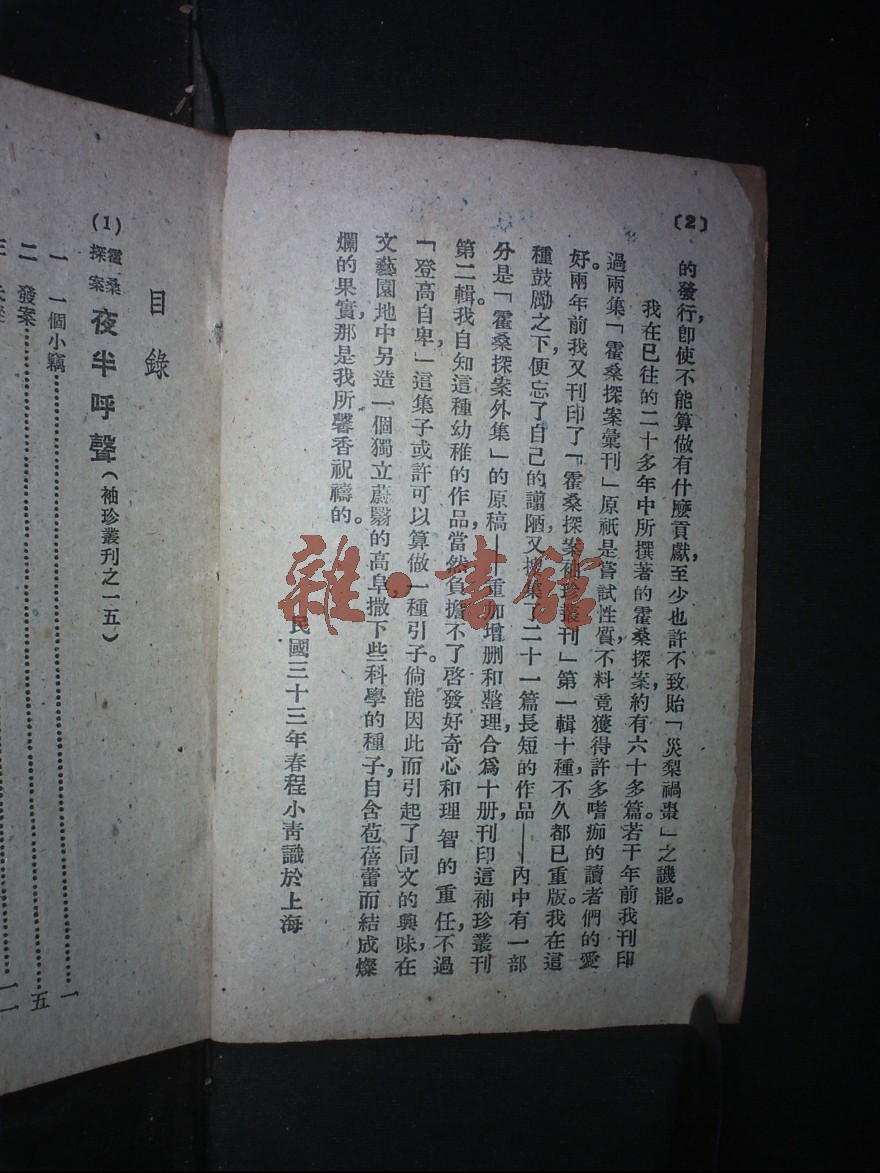 〔2〕
的發行卽使不能算做有什麼貢獻，至少也許不致貽「災梨禍棗」之譏罷。
我在已往的二十多年中所撰著的霍桑探案，約有六十多篇。若干年前我刊印
過兩集「霍桑探案彙刊」原祇是嘗試性質，不料竟獲得許多嗜痂的讀者們的愛
好。兩年前我又刊印了「霍桑探案袖珍叢刊」第一輯十種，不久都已重版。我在這
種鼓勵之下，便忘了自己的譾陋，又搜集了二十一篇長短的作品——內中有一部
分是「霍桑探案外集」的原稿——重加增删和整理，合爲十册，刊印這袖珍叢刊
第二輯。我自知這種幼稚的作品，當然負擔不了啓發好奇心和理智的重任，不過
「登高自卑」這集子或許可以算做一種引子。倘能因此而引起了同文的興味，在
文藝園地中另造一個獨立蔚翳的高阜，撒下些科學的種子，自含苞蓓蕾而結成燦
爛的果實，那是我所馨香祝禱的。
民國三十三年春程小靑識於上海
目錄
(1) 霍桑探案 夜半呼聲（袖珍叢刊之一五）
一 一個小竊……一
二 發案……五
雜·書館